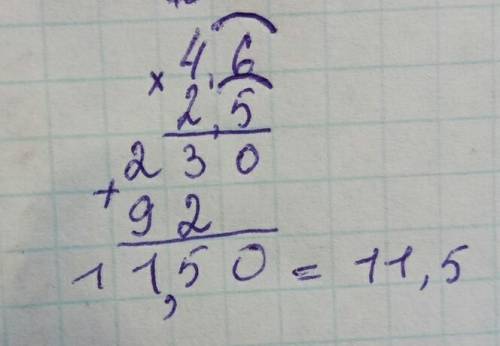 × 4,6
2,5
230
+ 92
11,50 = 11,5